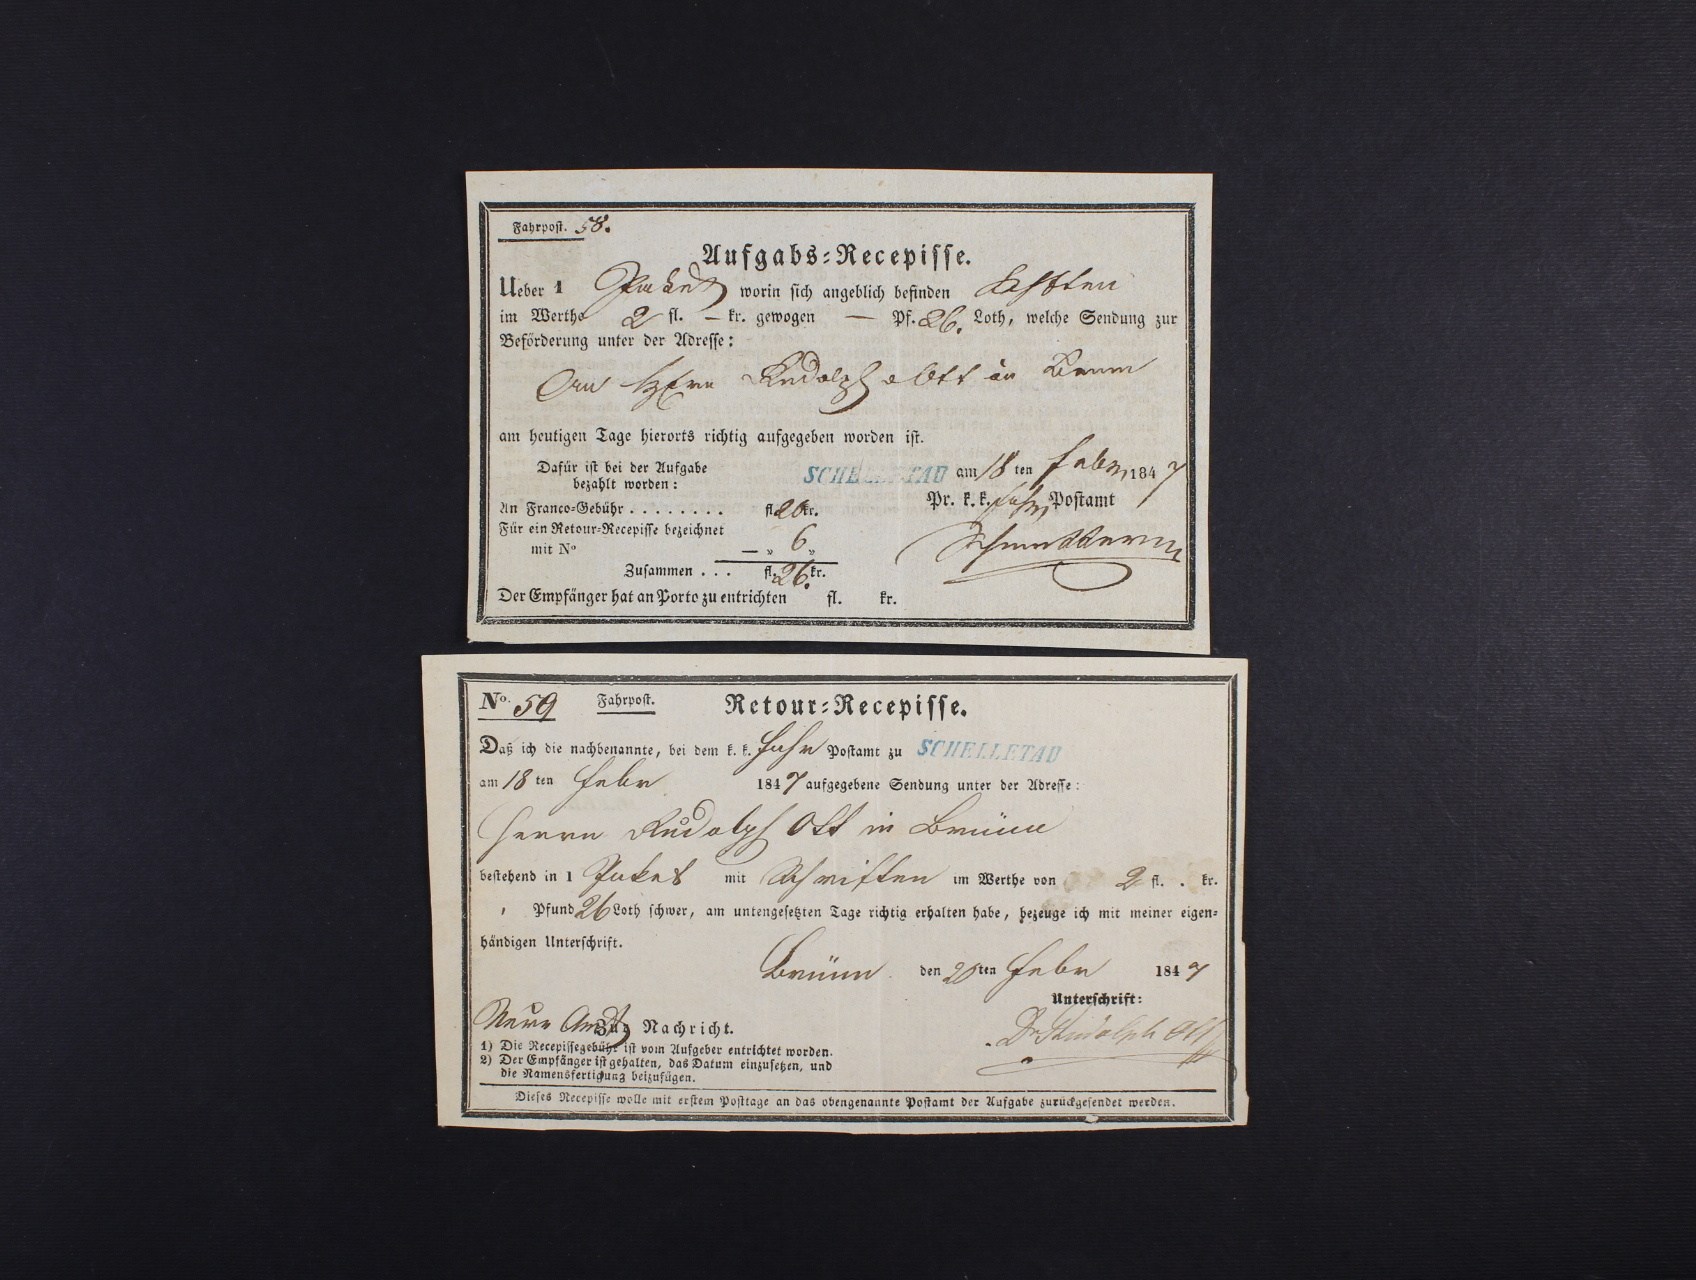 Fahrpost. 58.
Aufgabs-Recepisse.
Ueber 1 Paket worin sich angeblich befinden Schriften
im Werthe 2 fl. — kr. gewogen — Pf. 26. Loth, welche Sendung zur
Beförderung unter der Adresse:
An Herrn Rudolph Ott in Brünn
am heutigen Tage hierorts richtig aufgegeben worden ist.
Dafür ist bei der Aufgabe
bezahlt worden:
SCHELLETAU am 18 ten Febr. 1847
An Franco-Gebühr . . . . . . . . fl. 20 kr.
Pr. k. k. Fahr Postamt
Für ein Retour-Recepisse bezeichnet
mit No — „ 6 „
Zusammen . . . fl. 26. kr.
Der Empfänger hat an Porto zu entrichten fl. kr.
No. 59 Fahrpost. Retour-Recepisse.
Daß ich die nachbenannte, bei dem k. k. Fahr Postamt zu SCHELLETAU
am 18 ten Febr 1847 aufgegebene Sendung unter der Adresse:
Herrn Rudolph Ott in Brünn
bestehend in 1 Paket mit Schriften im Werthe von 2 fl. . kr.
Pfund 26 Loth schwer, am untengesetzten Tage richtig erhalten habe, bezeuge ich mit meiner eigen-
händigen Unterschrift.
Brünn den 20ten Febr 1847
Unterschrift:
Zur Nachricht.
Dr Rudolph Ott
1) Die Recepissegebühr ist vom Aufgeber entrichtet worden.
2) Der Empfänger ist gehalten, das Datum einzusetzen, und
die Namensfertigung beizufügen.
Dieses Recepisse wolle mit erstem Posttage an das obengenannte Postamt der Aufgabe zurückgesendet werden.